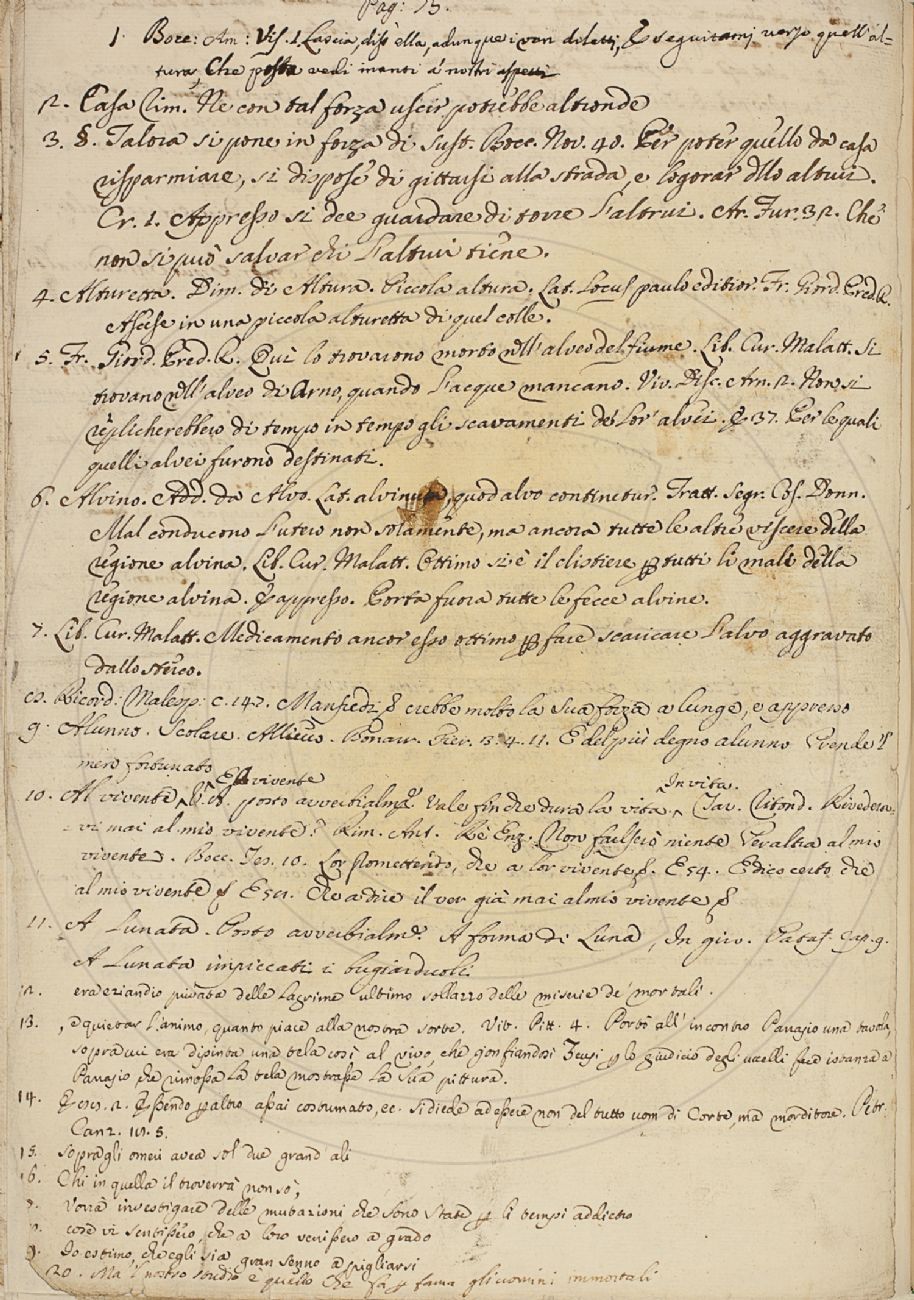 Pag: 73.
1. Bocc: Am: Vis. 1. Lascia, diss' ella, adunque i van diletti, E seguitami verso quell' al=
tura, Che posta vedi inanti a' nostri aspetti
2. Casa Rim. Ne con tal forza uscir potrebbe altronde
3. §. Talora si pone in forza di Sust. Bocc. Nov. 40. Per poter quello da casa
risparmiare, si dispose di gittarsi alla strada, e logorar dllo altrui.
Cr. 1. Appresso si dee guardare di torre l'altrui. Ar. Fur. 32. Che
non si può salvar chi l'altrui tiene.
4. Alturetta. Dim. di Altura. Piccola altura. Lat. Locus paulo editior. Fr. Giord. Pred. R.
Ascese in una piccola alturetta di quel colle.
5. Fr. Giord. Pred. R. Qui lo trovarono morto nll' alveo del fiume. Lib. Cur. Malatt. Si
trovano nll' alveo di Arno, quando l'acque mancano. Viv. Disc. Arn. 2. Non si
replicherebbero di tempo in tempo gli scavamenti de' lor' alvei. E 37. Per le quali
quelli alvei furono destinati.
6. Alvino. Add. da Alvo. Lat. alvinus, quod alvo continetur. Tratt. Segr. Cos. Donn.
Mal conducono l'utero non solamente, ma ancora tutte le altre viscere della
regione alvina. Lib. Cur. Malatt. Ottimo si è il clistiere p tutti li mali della
regione alvina. E appresso. Porta fuora tutte le fecce alvine.
7. Lib. Cur. Malatt. Medicamento ancor esso ottimo p fare scaricare l'alvo aggravato
dallo sterco.
8. Ricord: Malesp: c. 147. Manfredi & crebbe molto la sua forza a lungi, e appresso
9. Alunno. Scolare. Allievo. Bonarr. Fier. 3. 4. 11. E del più degno alunno
men fortunato
10. Al vivente, E A vivente posto avverbialmte. Vale finche dura la vita, In vita. Tav. Ritond. Rivedero-
vi mai al mio vivente? Rim. Ant. Re Enz. Non niente Per altra al mio
vivente. Bocc. Tes. 10. Lor promettendo, che a lor vivente &. E 54. E dico certo, che
al mio vivente & E 59. Che a dire il ver già mai al mio vivente &
11. A Lunata. Posto avverbialme. A forma di Luna, In giro. Pataf. Cap. 9.
A Lunata impiccati i bugiarduoli
12. era eziandio privata delle lagrime ultimo sollazzo delle miserie de' mortali.
13. , e quietar l'animo, quanto piace alla nostra sorte. Vit. Pitt. 4. Portò all' incontro Parrasio una tavola,
sopra cui era dipinta una tela così al vivo, che gonfiandosi Zeusi p lo giudicio degli uccelli fece istanza a
Parrasio che rimossa la tela mostrasse la sua pittura.
14. Essendo p altro assai costumato, ec. si diede ad essere non del tutto uom di Corte, ma morditore. Petr.
Canz.
15. Sopra gli omeri avea sol due grand' ali
16. Chi in quella il troverrà non so,
Vorrà investigare delle mutazioni che sono state p li tempi addietro
cose vi sentissero, che a loro venissero a grado
Io estimo, che egli sia gran senno a pigliarsi
20. Ma 'l nostro studio è quello che fa p fama gli uomini immortali